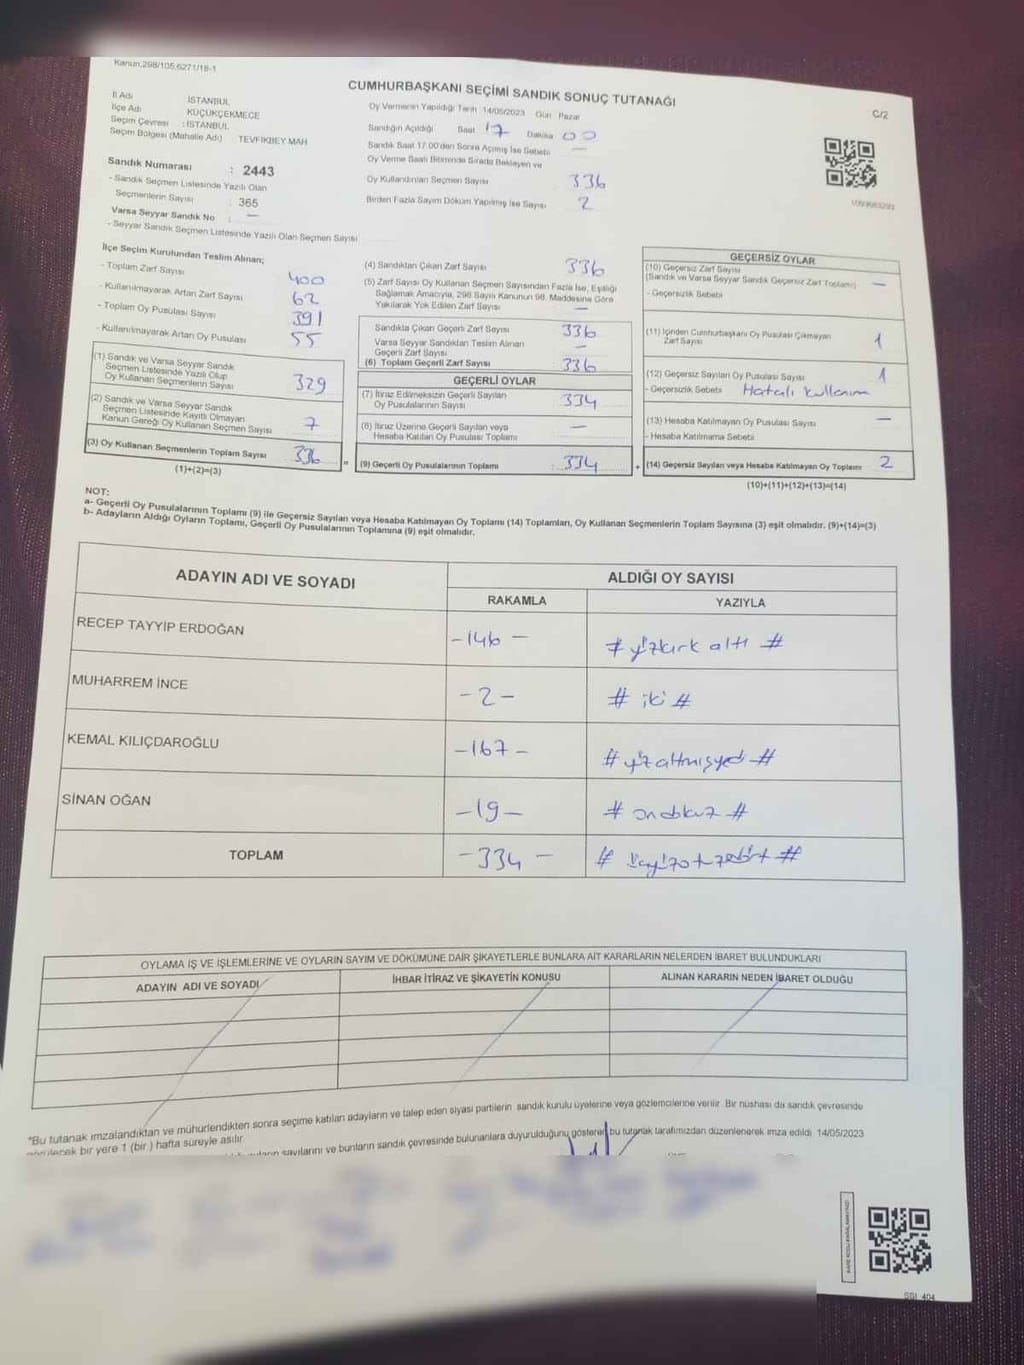 Kanun,298/105,6271/18-1
CUMHURBAŞKANI SEÇİMİ SANDIK SONUÇ TUTANAĞI
C/2
İl Adı İSTANBUL
İlçe Adı KÜÇÜKÇEKMECE
Seçim Çevresi : İSTANBUL
Seçim Bölgesi (Mahalle Adı) TEVFİKBEY MAH
Sandık Numarası : 2443
- Sandık Seçmen Listesinde Yazılı Olan
Seçmenlerin Sayısı : 365
Varsa Seyyar Sandık No : —
- Seyyar Sandık Seçmen Listesinde Yazılı Olan Seçmen Sayısı
Oy Vermenin Yapıldığı Tarih 14/05/2023 Gün Pazar
Sandığın Açıldığı Saat 17 Dakika 00
Sandık Saat 17.00'den Sonra Açılmış İse Sebebi —
Oy Verme Saati Bitiminde Sırada Bekleyen ve
Oy Kullandırılan Seçmen Sayısı 336
Birden Fazla Sayım Döküm Yapılmış İse Sayısı 2
İlçe Seçim Kurulundan Teslim Alınan;
- Toplam Zarf Sayısı 400
- Kullanılmayarak Artan Zarf Sayısı 62
- Toplam Oy Pusulası Sayısı 391
- Kullanılmayarak Artan Oy Pusulası 55
(1) Sandık ve Varsa Seyyar Sandık
Seçmen Listesinde Yazılı Olup
Oy Kullanan Seçmenlerin Sayısı 329
(2) Sandık ve Varsa Seyyar Sandık
Seçmen Listesinde Kayıtlı Olmayan
Kanun Gereği Oy Kullanan Seçmen Sayısı 7
(3) Oy Kullanan Seçmenlerin Toplam Sayısı 336
(1)+(2)=(3)
(4) Sandıktan Çıkan Zarf Sayısı 336
(5) Zarf Sayısı Oy Kullanan Seçmen Sayısından Fazla İse, Eşitliği
Sağlamak Amacıyla, 298 Sayılı Kanunun 98. Maddesine Göre
Yakılarak Yok Edilen Zarf Sayısı —
Sandıkta Çıkan Geçerli Zarf Sayısı 336
Varsa Seyyar Sandıktan Teslim Alınan
Geçerli Zarf Sayısı —
(6) Toplam Geçerli Zarf Sayısı 336
GEÇERLİ OYLAR
(7) İtiraz Edilmeksizin Geçerli Sayılan
Oy Pusulalarının Sayısı 334
(8) İtiraz Üzerine Geçerli Sayılan veya
Hesaba Katılan Oy Pusulası Toplamı —
= (9) Geçerli Oy Pusulalarının Toplamı : 334
GEÇERSİZ OYLAR
(10) Geçersiz Zarf Sayısı
(Sandık ve Varsa Seyyar Sandık Geçersiz Zarf Toplamı) —
- Geçersizlik Sebebi
(11) İçinden Cumhurbaşkanı Oy Pusulası Çıkmayan
Zarf Sayısı 1
(12) Geçersiz Sayılan Oy Pusulası Sayısı 1
- Geçersizlik Sebebi Hatalı kullanım
(13) Hesaba Katılmayan Oy Pusulası Sayısı —
- Hesaba Katılmama Sebebi
+ (14) Geçersiz Sayılan veya Hesaba Katılmayan Oy Toplamı 2
(10)+(11)+(12)+(13)=(14)
NOT:
a- Geçerli Oy Pusulalarının Toplamı (9) ile Geçersiz Sayılan veya Hesaba Katılmayan Oy Toplamı (14) Toplamları, Oy Kullanan Seçmenlerin Toplam Sayısına (3) eşit olmalıdır. (9)+(14)=(3)
b- Adayların Aldığı Oyların Toplamı, Geçerli Oy Pusulalarının Toplamına (9) eşit olmalıdır.
ADAYIN ADI VE SOYADI
ALDIĞI OY SAYISI
RAKAMLA YAZIYLA
RECEP TAYYİP ERDOĞAN -146- # yüzkırk altı #
MUHARREM İNCE -2- # iki #
KEMAL KILIÇDAROĞLU -167- # yüzaltmışyedi #
SİNAN OĞAN -19- # ondokuz #
TOPLAM -334- # üçyüzotuzdört #
OYLAMA İŞ VE İŞLEMLERİNE VE OYLARIN SAYIM VE DÖKÜMÜNE DAİR ŞİKAYETLERLE BUNLARA AİT KARARLARIN NELERDEN İBARET BULUNDUKLARI
ADAYIN ADI VE SOYADI İHBAR İTİRAZ VE ŞİKAYETİN KONUSU ALINAN KARARIN NEDEN İBARET OLDUĞU
*Bu tutanak imzalandıktan ve mühürlendikten sonra seçime katılan adayların ve talep eden siyasi partilerin sandık kurulu üyelerine veya gözlemcilerine verilir. Bir nüshası da sandık çevresinde
görülecek bir yere 1 (bir ) hafta süreyle asılır.
sayılarını ve bunların sandık çevresinde bulunanlara duyurulduğunu gösterer bu tutanak tarafımızdan düzenlenerek imza edildi 14/05/2023
SSI_404